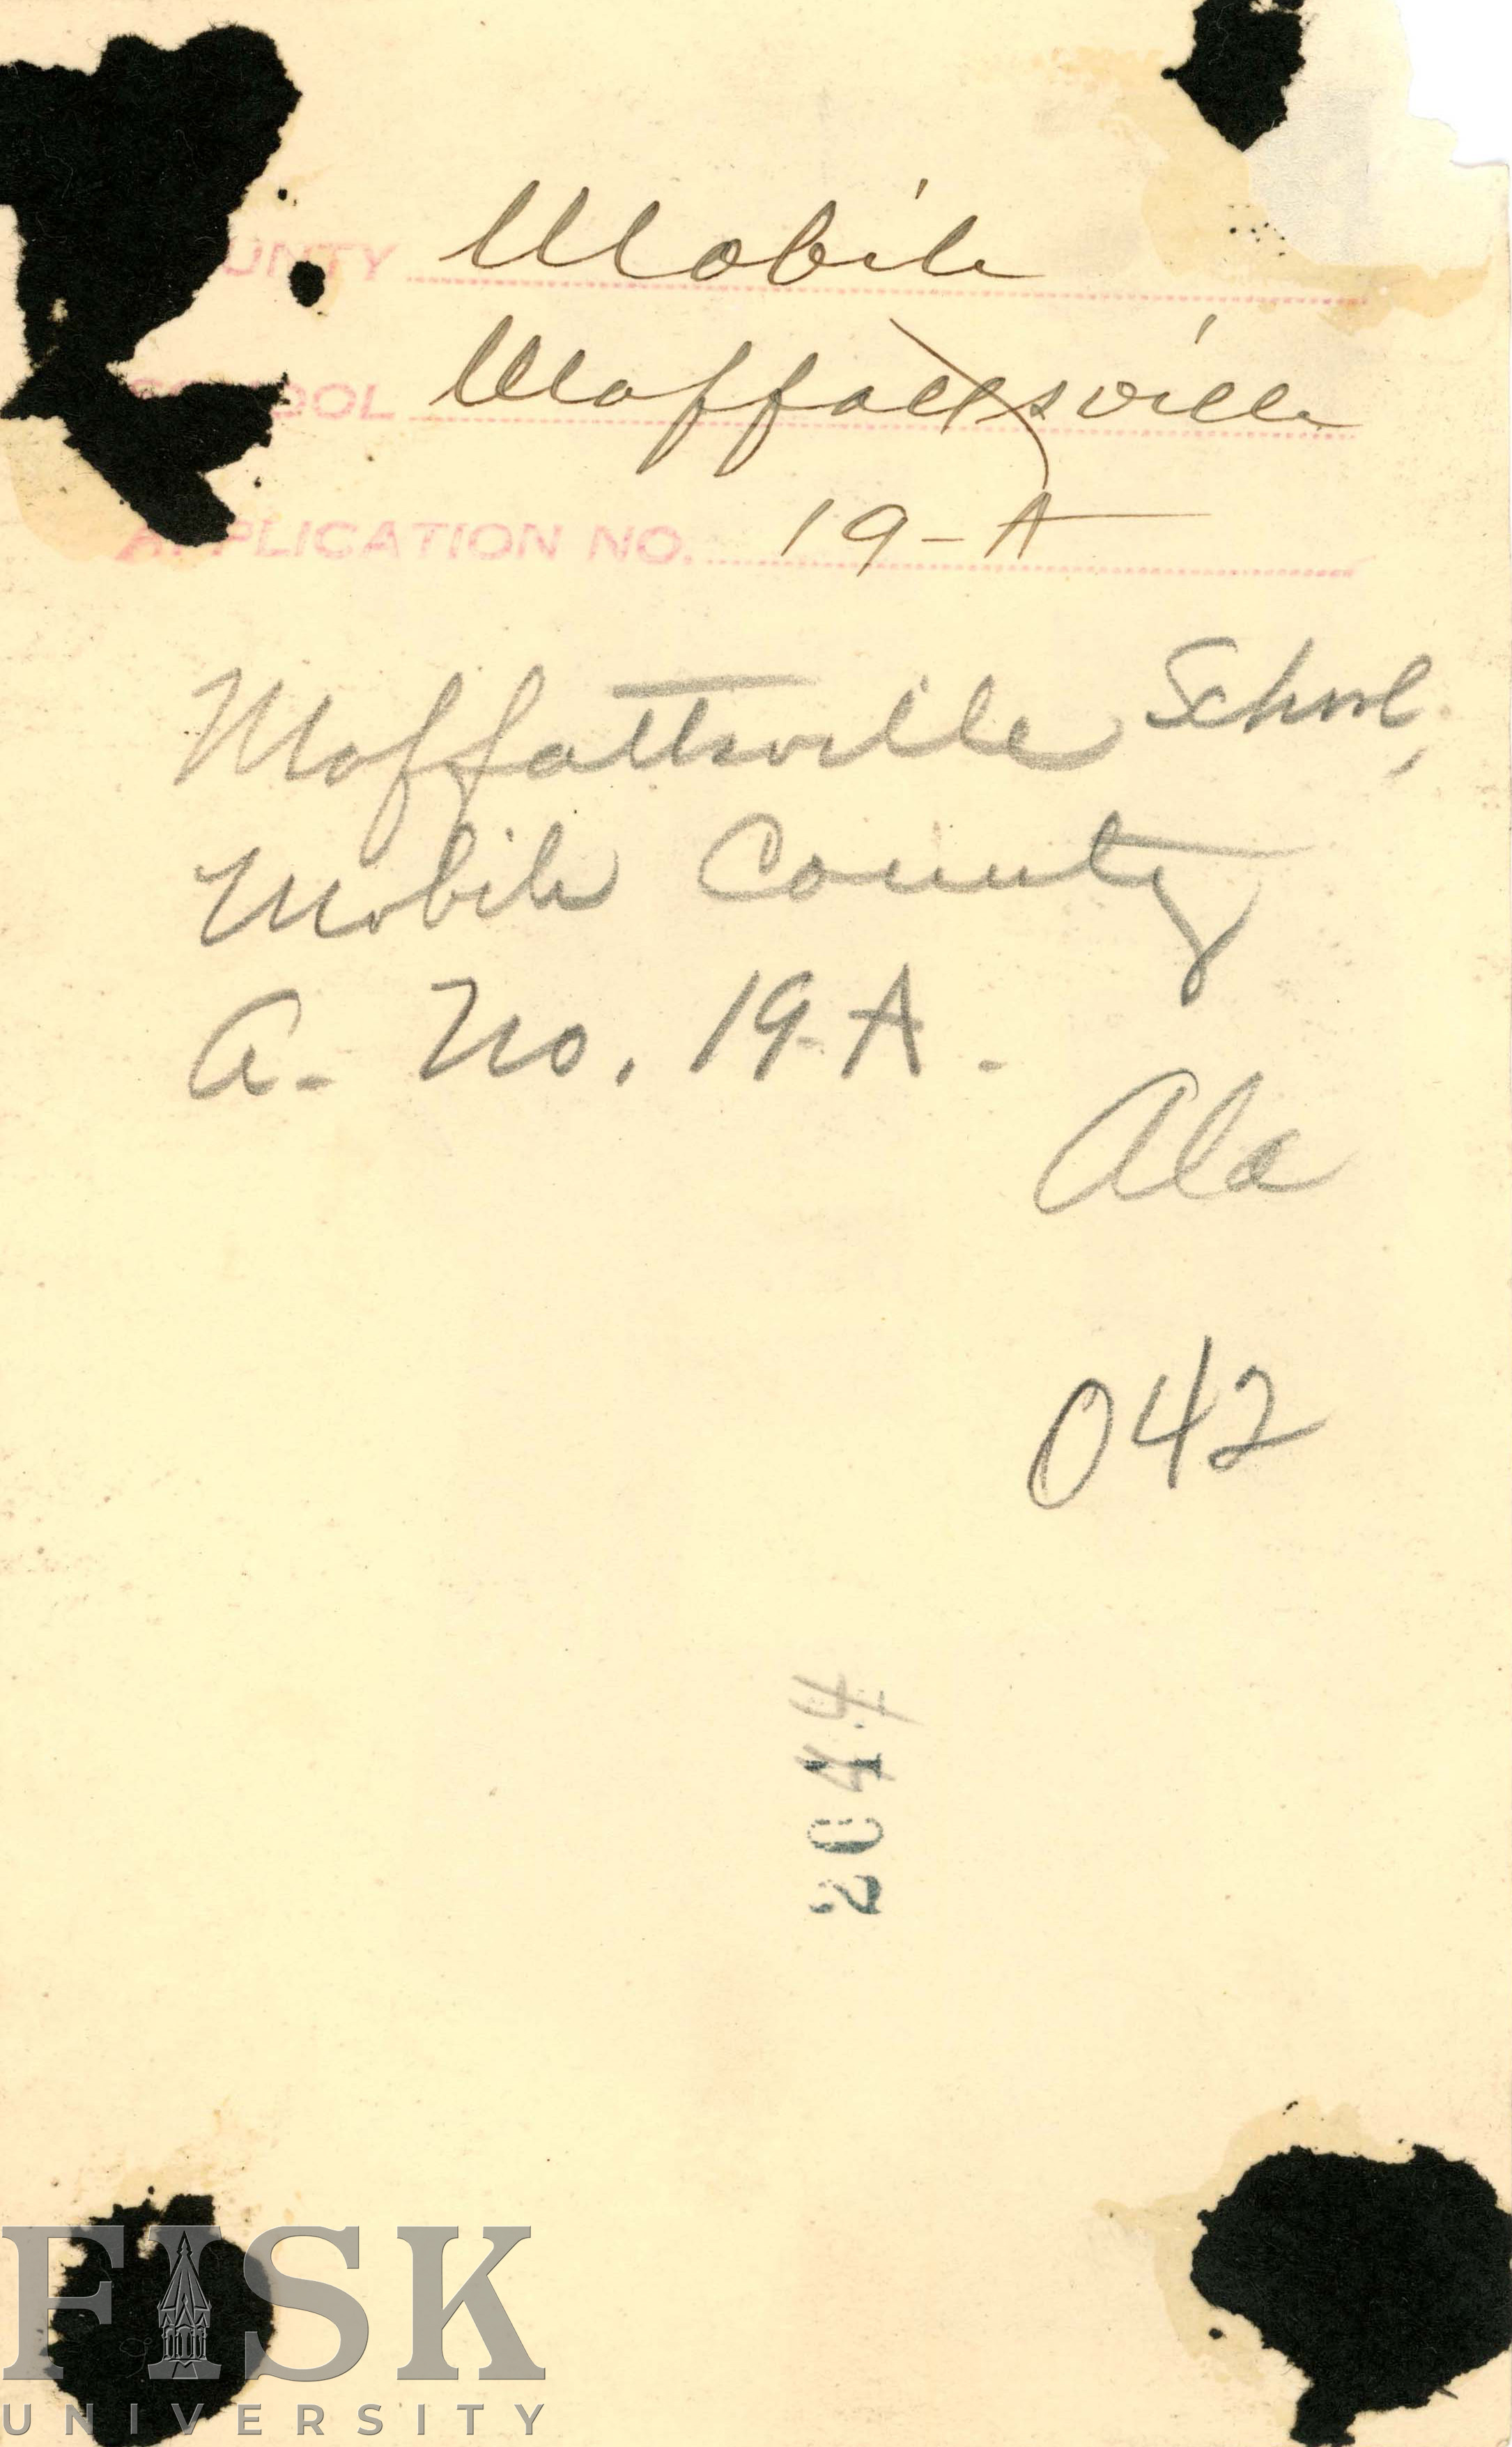 UNTY Mobile
SCHOOL Moffattsville
APPLICATION NO. 19-A
Moffattsville School,
Mobile County
A. No. 19-A.
Ala
042
2044
FISK
UNIVERSITY